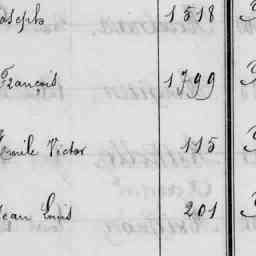 Joseph 1518
François 1799
Emile Victor 115
Jean Louis 201